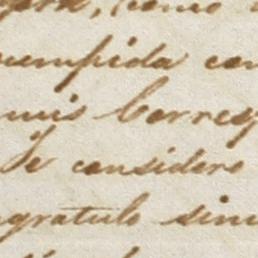 como
umpida con
mis Corres
Te considero
ngratulo sinc